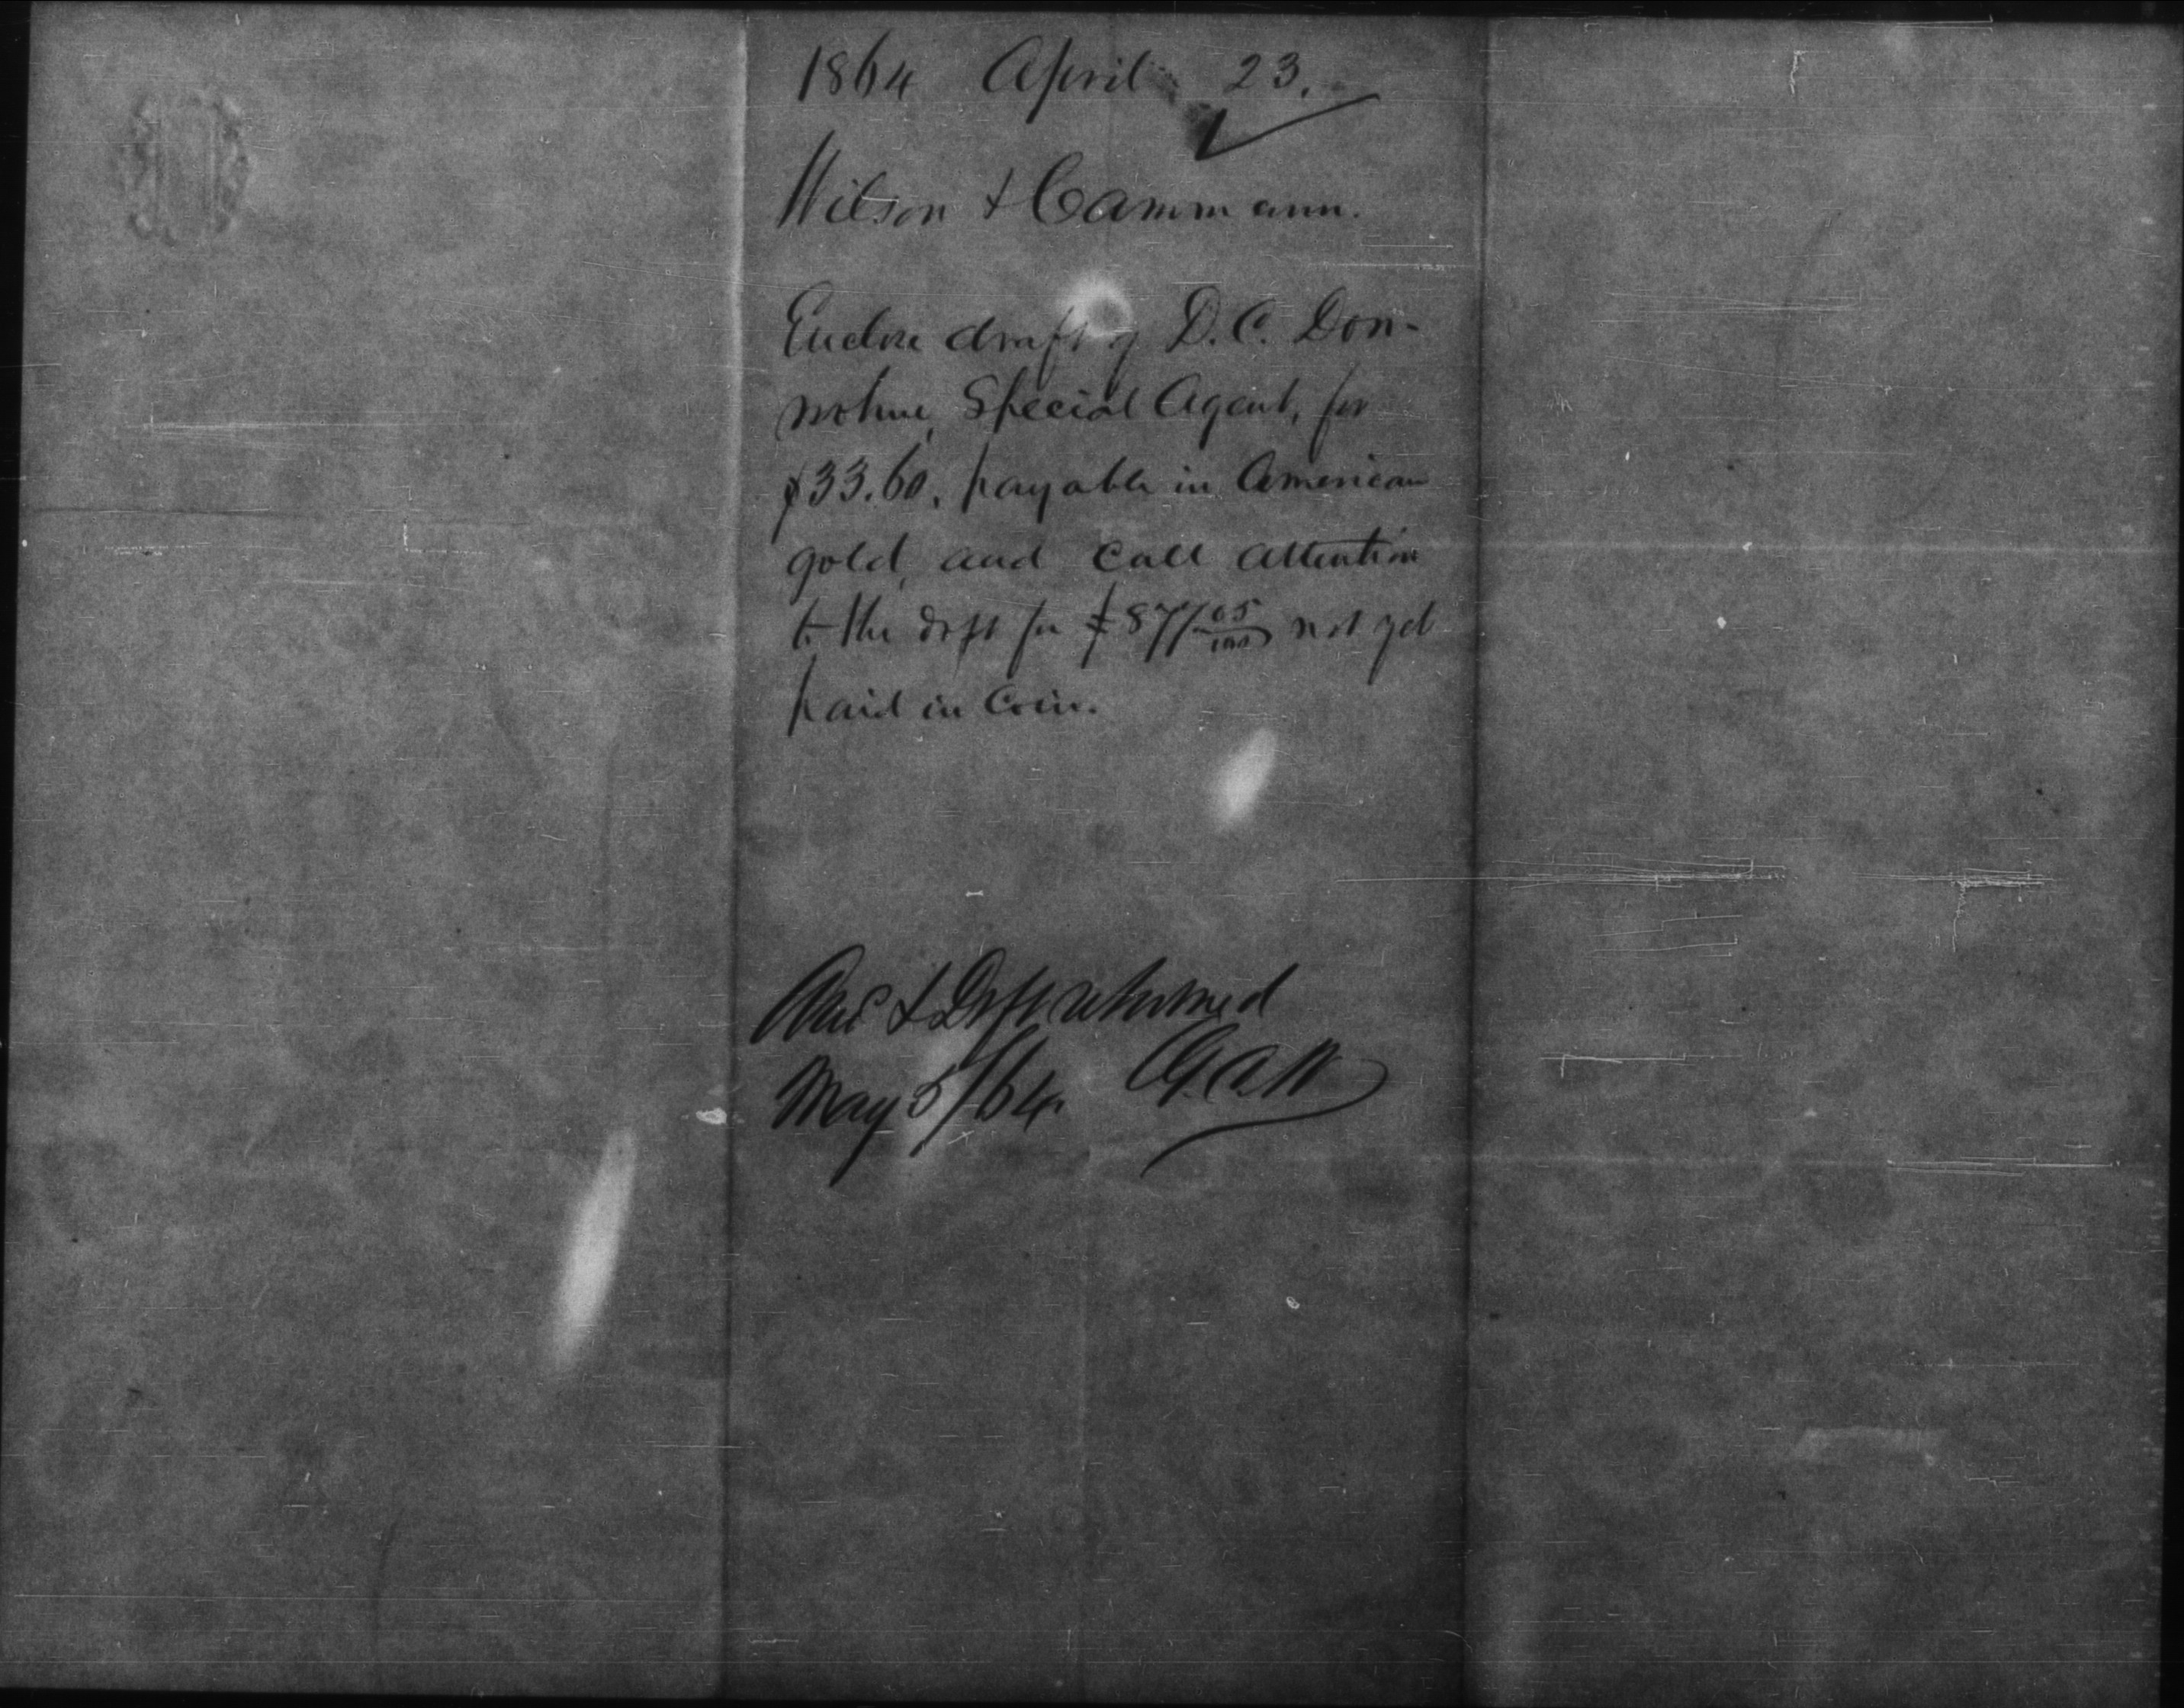 1864 April 23.
Wilson & Cammann.
Enclose draft of D. C. Don-
nohue, Special Agent, for
$33.60, payable in American
gold, and call attention
to the drft for $877 65/100 not yet
paid in Coin.
Ansd & Drft returned
May 5/64.